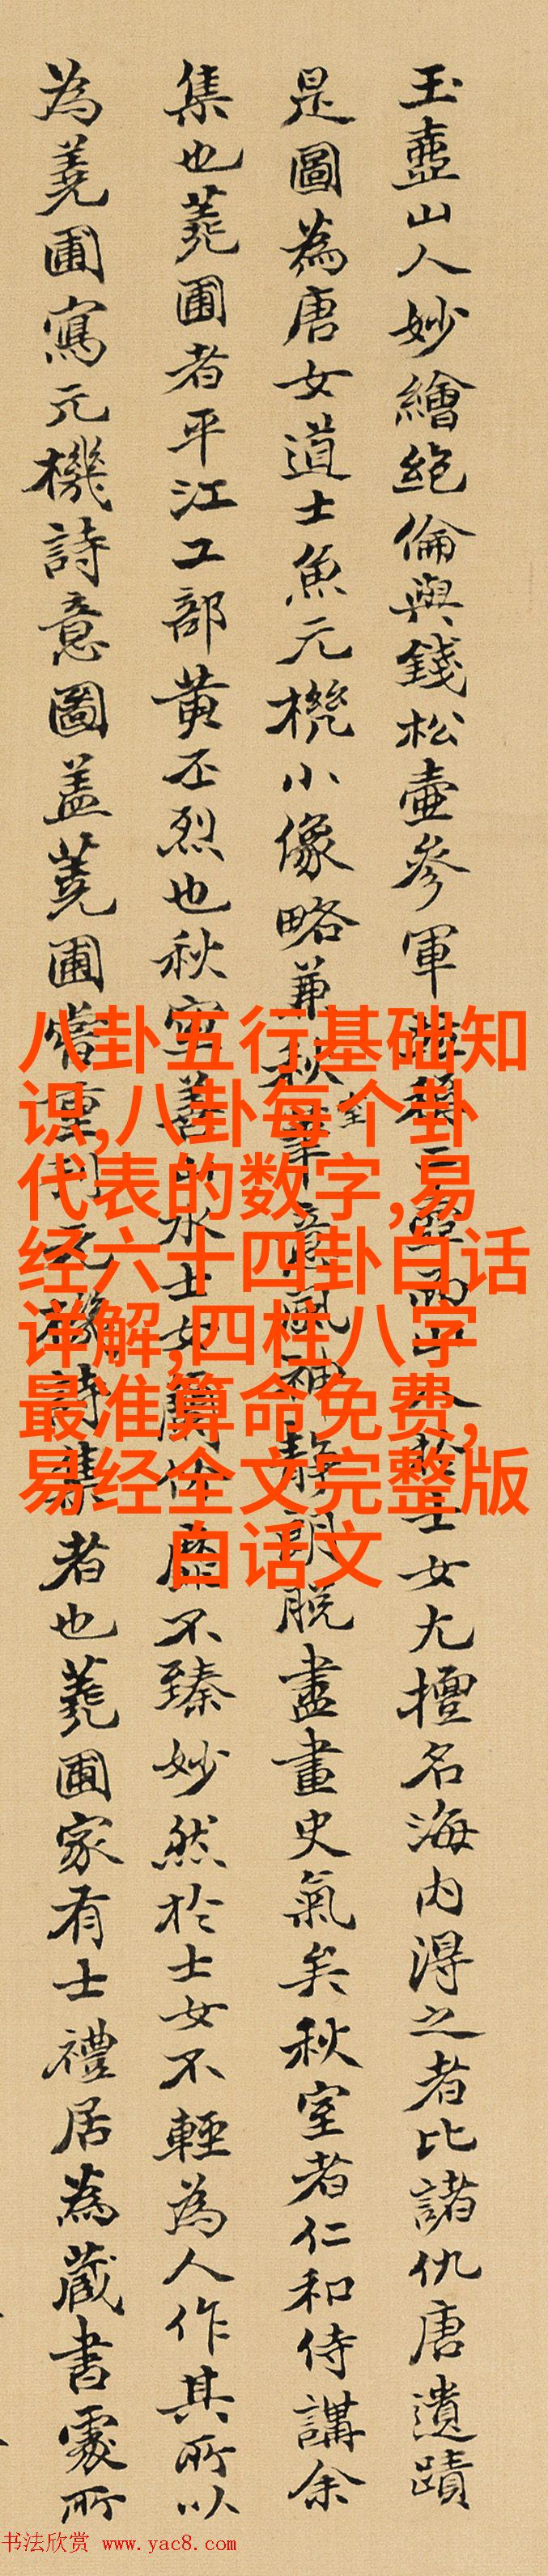 玉壺山人妙繪絕倫與錢松壺參軍
女尤擅名海內得之者比諸仇唐遺蹟
是圖為唐女道士魚元機小像略兼秋室筆意
靜朗脫盡畫史氣矣秋室者仁和侍講余
集也蕘圃者平江工部黃丕烈也秋室善山水士女
不臻妙然於士女不輕為人作其所以
為蕘圃寫元機詩意圖蓋蕘圃嘗重刊元機詩集者也蕘圃家有士禮居為藏書處所
八卦五行基础知
识,八卦每个卦
代表的数字,易
经六十四卦白话
详解,四柱八字
最准算命免费,
易经全文完整版
白话文
书法欣赏 www.yac8.com